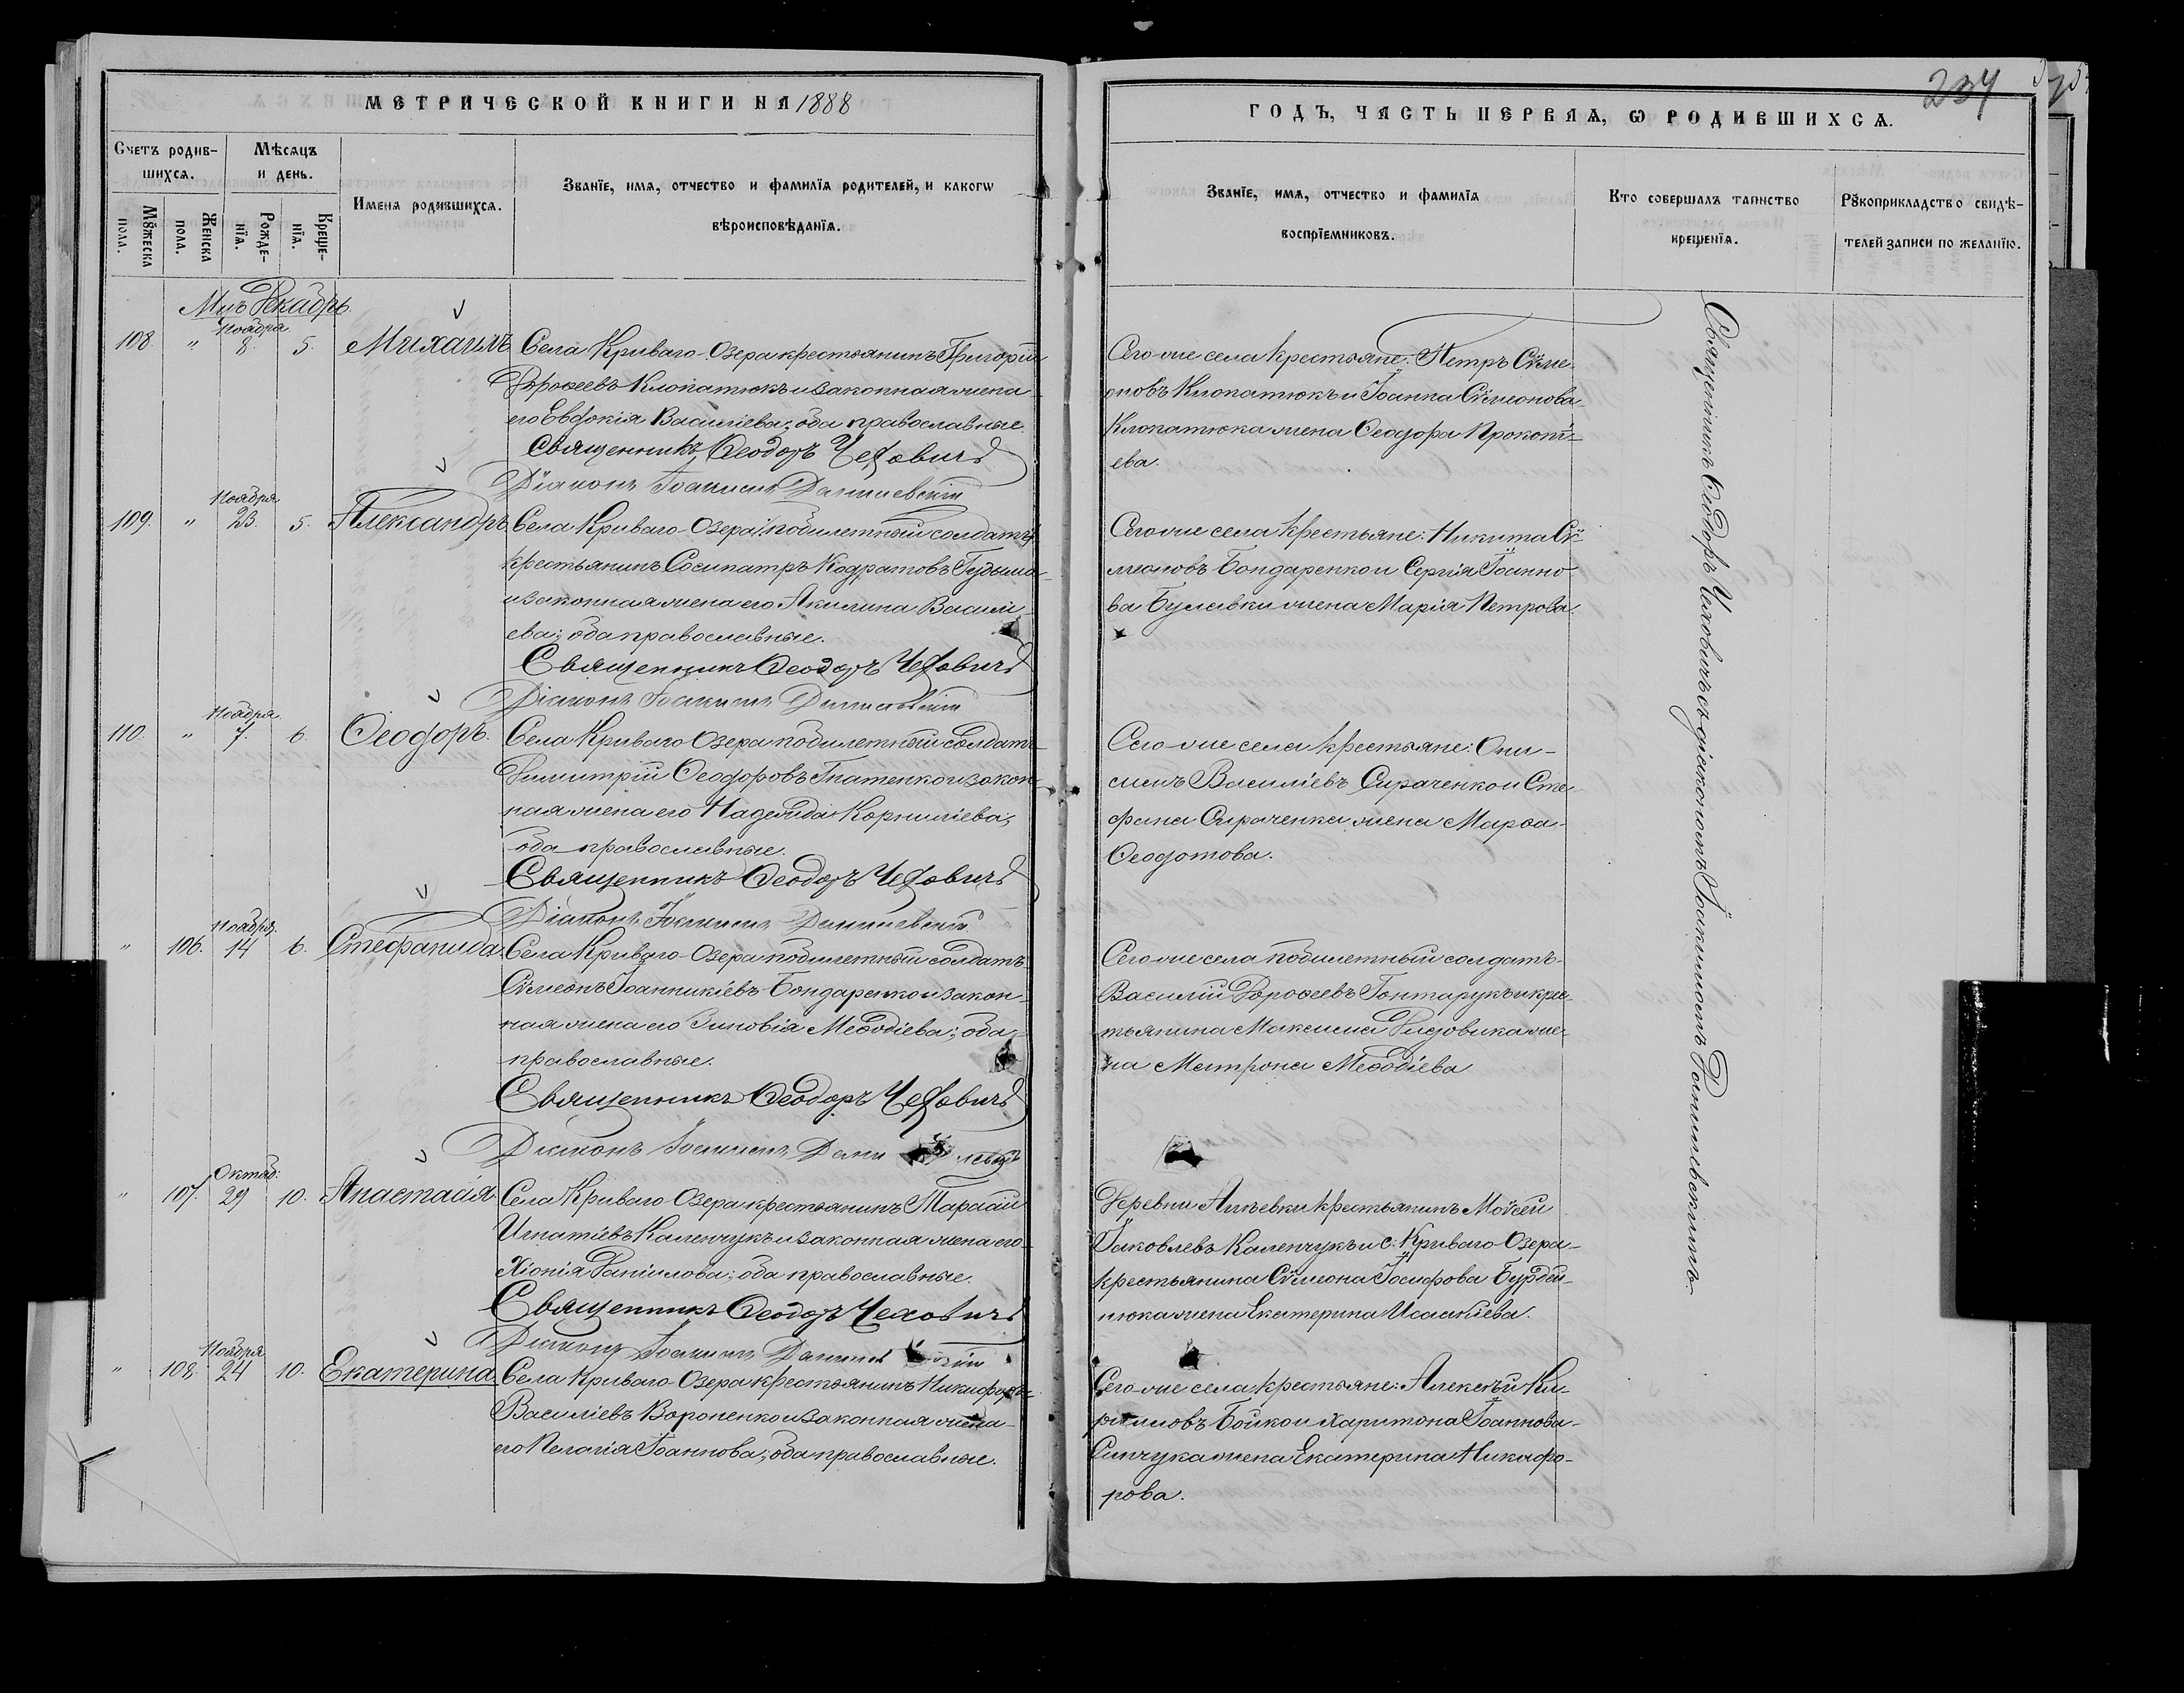 МЕТРИЧЕСКОЙ КНИГИ НА 1888
Счетъ родив-
шихся.
Мѣсяцъ
и день.
Мꙋжеска
пола.
Женска
пола.
Рожде-
нїя.
Креще-
нїя.
Имена родившихся.
Званїе, имя, отчество и фамилїя родителей, и какогѡ
вѣроисповѣданїя.
Мцъ Декабрь.
108. " Ноября 8. 5. Михаилъ
Села Криваго-Озера крестьянинъ Григорій
Дороѳеевъ Клопатюкъ и законная жена
его Евдокія Василіева; оба православные.
Священникъ Ѳеодоръ Чеховичъ
Діаконъ Іоакимъ Данилевскій
109. " Ноября 23. 5. Александръ
Села Криваго-Озера побилетный солдатъ
крестьянинъ Сосипатръ Кодратовъ Гудыма
и законная жена его Акилина Васили
ева; оба православные.
Священникъ Ѳеодоръ Чеховичъ
Діаконъ Іоакимъ Данилевскій
110. " Ноября 7. 6. Ѳеодоръ.
Села Криваго Озера побилетный солдатъ
Димитрій Ѳеодоровъ Гнатенко и закон-
ная жена его Надежда Корниліева;
оба православные.
Священникъ Ѳеодоръ Чеховичъ
Діаконъ Іоакимъ Данилевскій
" 106. Ноября 14 6. Стефанида
Села Криваго-Озера побилетный солдатъ
Сѵмеонъ Іоанникіевъ Бондаренко и закон-
ная жена его Зиновія Меѳодіева; оба
православные.
Священникъ Ѳеодоръ Чеховичъ
Діаконъ Іоакимъ
" 107. Октяб: 29 10. Анастасія
Села Криваго Озера крестьянинъ Тарасій
Игнатіевъ Каленчукъ и законная жена его
Хіонія Даніилова; оба православные.
Священникъ Ѳеодоръ Чеховичъ
Діаконъ Іоакимъ
" 108. Ноября 24 10. Екатерина
Села Криваго Озера крестьянинъ Никифоръ
Василіевъ Вороненко и законная жена
его Пелагія Іоаннова; оба православные.
234
ГОДЪ, ЧАСТЬ ПЕРВАЯ, Ѡ РОДИВШИХСЯ.
Званїе, имя, отчество и фамилїя
воспрїемниковъ.
Кто совершалъ таинство
крещенїя.
Рꙋкоприкладство свидѣ-
телей записи по желанїю.
Сего-же села крестьяне: Петръ Сѵме-
оновъ Клопатюкъ и Іоанна Сѵмеонова
Клопатюка жена Ѳеодора Прокопі-
ева.
Сего же села крестьяне: Никита Сѵ-
меоновъ Бондаренко и Сергія Іоанно-
ва Булавки жена Марія Петрова.
Сего-же села крестьяне: Они-
симъ Василіевъ Сираченко и Сте-
фана Сираченка жена Марѳа
Ѳеодотова.
Сего-же села побилетный солдатъ
Василій Дороѳеевъ Гонтарукъ и крес-
тьянина Максима Дидовика же-
на Матрона Меѳодіева
Деревни крестьянинъ Моѵсей
Іаковлевъ Каленчукъ и с. Криваго-Озера
крестьянина Сѵмеона Іосифова Бурдей-
нюка жена Екатерина Исаакіева.
Сего-же села крестьяне: Алексѣй Ки-
рилловъ Бойко и Харитона Іоаннова
Синчука жена Екатерина Никифо-
рова.
Священникъ Ѳеодоръ Чеховичъ съ діакономъ Іоакимомъ Данилевскимъ.